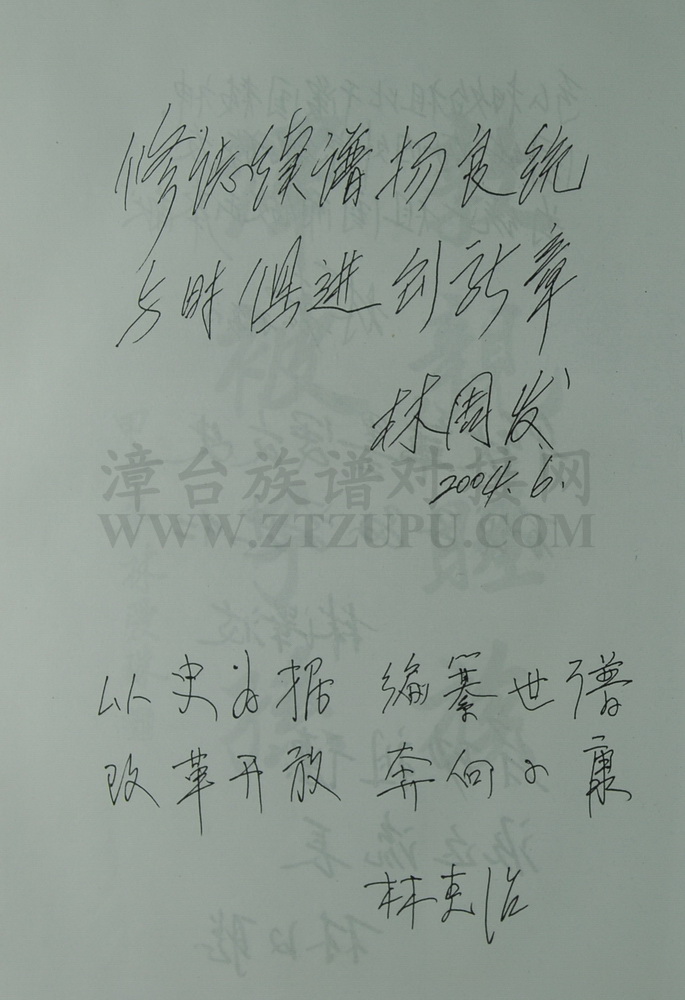 修志续谱扬良统
与时俱进创新章
林周发
2004.6.
漳台族谱对接网
WWW.ZTZUPU.COM
以史为据 编纂世谱
改革开放 奔向小康
林吏治